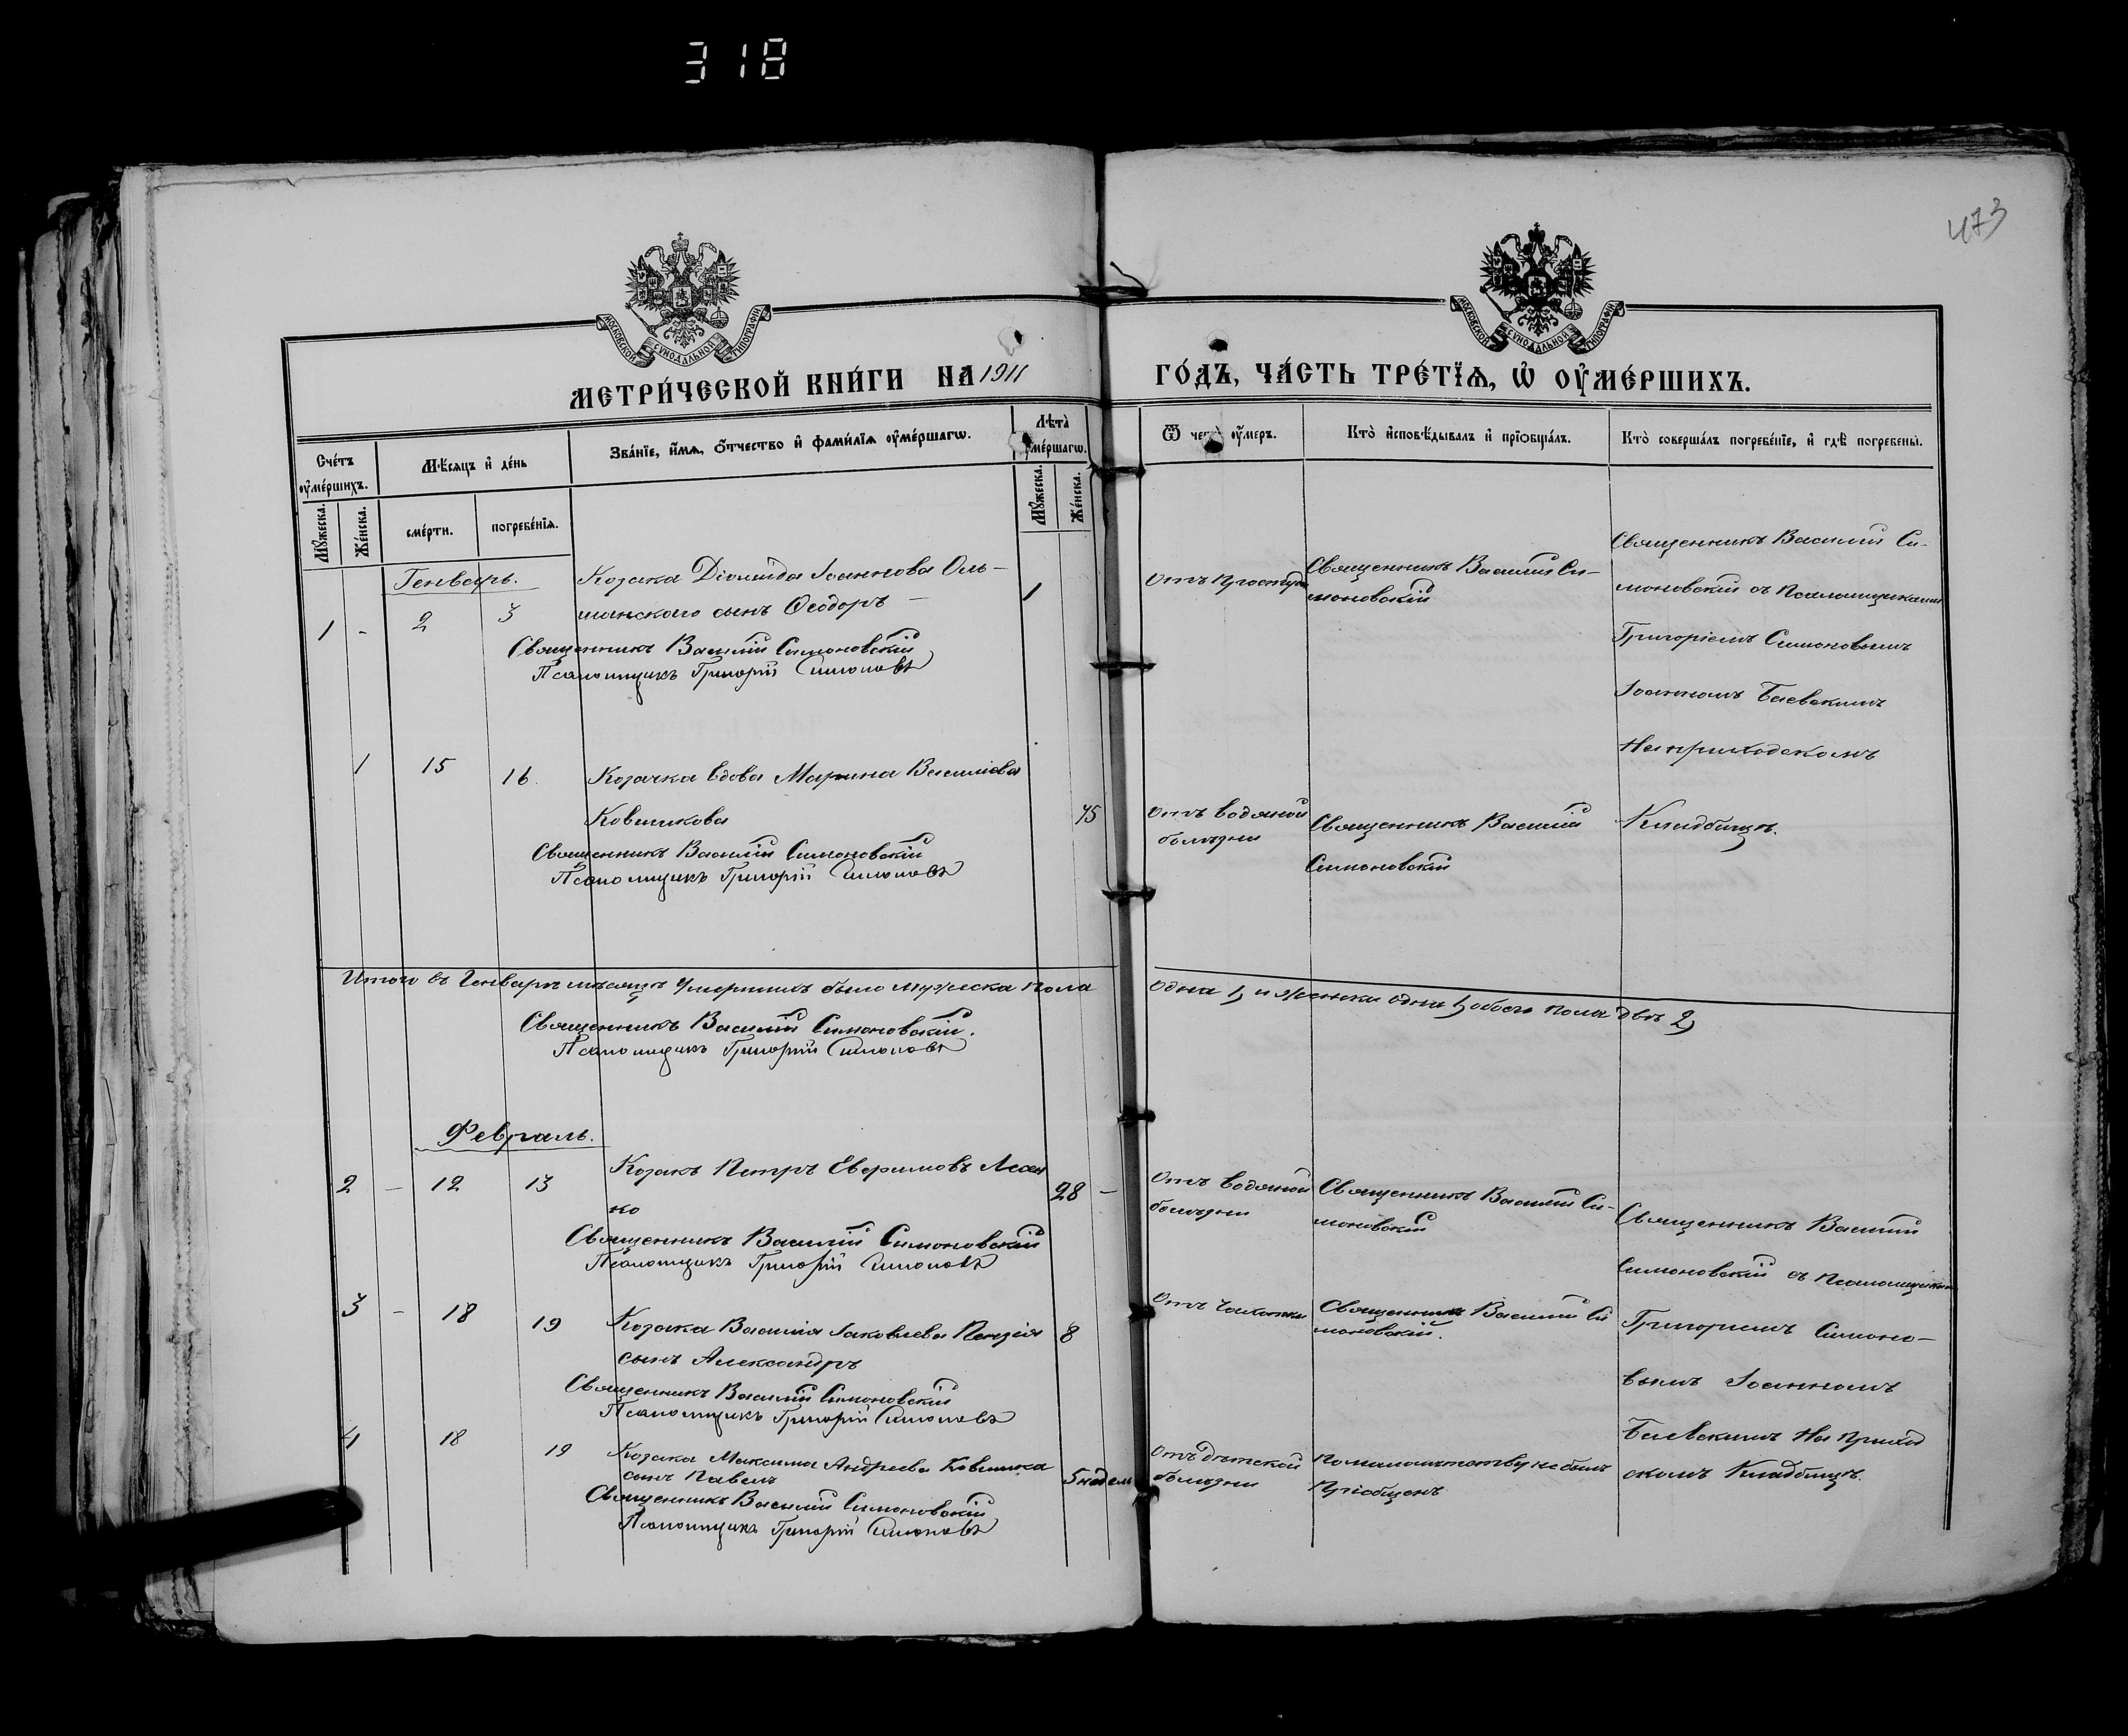 318
473
МОСКОВСКОЙ СѴНОДАЛЬНОЙ ТИПОГРАФІИ
МОСКОВСКОЙ СѴНОДАЛЬНОЙ ТИПОГРАФІИ
МЕТРИ́ЧЕСКОЙ КНИ́ГИ НА 1911
ГО́ДЪ, ЧА́СТЬ ТРЕ́ТЇѦ, Ѡ҆ ОУ҆МЕ́РШИХЪ.
Сче́тъ оу҆ме́ршихъ.
Мѣ́сѧцъ и҆ де́нь
Зва́нїе, и҆́мѧ, ѻ҆́тчество и҆ фами́лїѧ оу҆ме́ршагѡ.
Лѣта̀ оу҆ме́ршагѡ.
Ѿ чегѡ̀ оу҆́меръ.
Кто̀ и҆сповѣ́дывалъ и҆ прїѡбща́лъ.
Кто̀ соверша́лъ погребе́нїе, и҆ гдѣ̀ погребены̀.
Мꙋ́жеска.
Же́нска.
сме́рти.
погребе́нїѧ.
Мꙋ́жеска.
Же́нска.
Генварь.
1 - 2 3
Козака Діомида Іоаннова Оль-
шанскаго сынъ Ѳеодоръ -
1
Священникъ Василій Симоновскій
Псаломщикъ Григорій Симоновъ
Отъ простуды
Священникъ Василій Си-
моновскій
Священникъ Василій Си-
моновскій съ Псаломщиками
Григоріемъ Симоновымъ
Іоанномъ Баевскимъ
На приходскомъ
Кладбищѣ.
1 15 16.
Козачка вдова Марина Василіева
Ковшикова
75
Священникъ Василій Симоновскій
Псаломщикъ Григорій Симоновъ
Отъ водяной
болѣзни
Священникъ Василій
Симоновскій
Итого въ Генварѣ мѣсяцѣ умершихъ было мужеска пола
одна 1, и женска одна 1, обоего пола двѣ 2,
Священникъ Василій Симоновскій.
Псаломщикъ Григорій Симоновъ
Февраль.
2 - 12 13
Козакъ Петръ Евфимовъ Лесен
ко
28 -
Священникъ Василій Симоновскій
Псаломщикъ Григорій Симоновъ
Отъ водяной
болѣзни
Священникъ Василій Си-
моновскій
Священникъ Василій
Симоновскій съ Псаломщиками
Григоріемъ Симоно-
вымъ Іоанномъ
Баевскимъ На Приход
скомъ Кладбищѣ.
3 - 18 19
Козака Василія Іаковлева
сынъ Александръ
8
Священникъ Василій Симоновскій
Псаломщикъ Григорій Симоновъ
Отъ Чахотки
Священникъ Василій Си
моновскій.
4 18 19
Козака Максима Андреева Ковшика
сынъ Павелъ
5 недел
Священникъ Василій Симоновскій
Псаломщикъ Григорій Симоновъ
Отъ дѣтской
болѣзни
По малолѣтству не былъ
Пріобщенъ